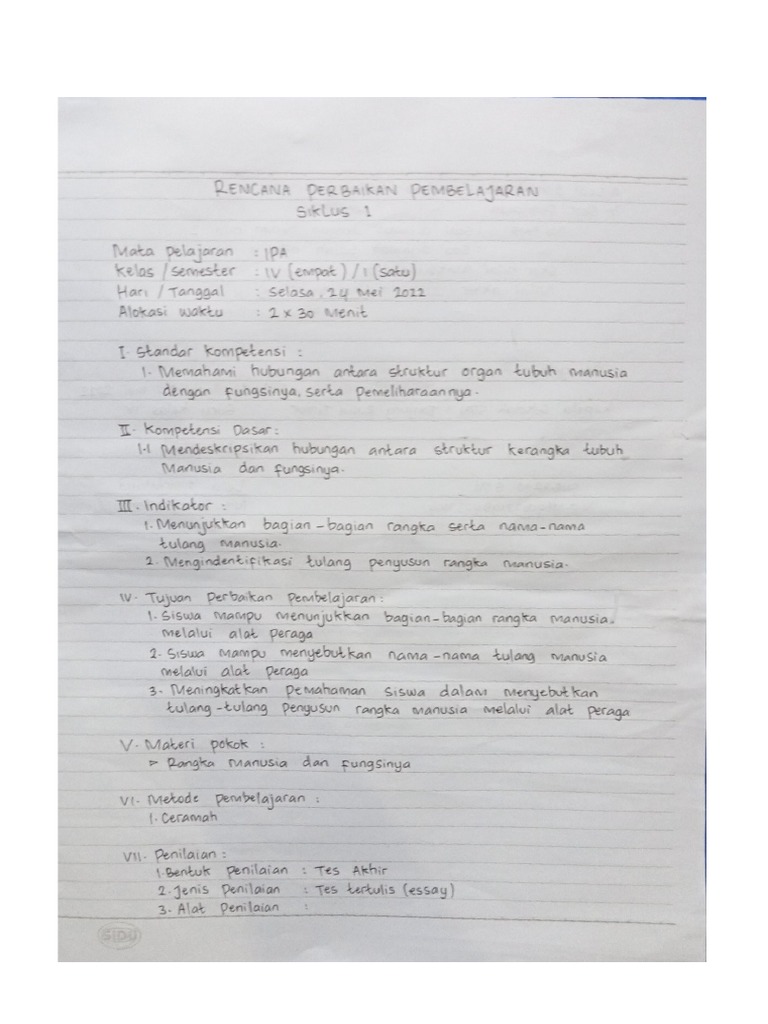 RENCANA PERBAIKAN PEMBELAJARAN
SIKLUS 1
Mata pelajaran : IPA
Kelas / semester : IV (empat) / I (satu)
Hari / Tanggal : Selasa, 24 Mei 2022
Alokasi waktu : 2 x 30 Menit
I. Standar Kompetensi :
1. Memahami hubungan antara struktur organ tubuh manusia
dengan fungsinya, serta Pemeliharaannya.
II. Kompetensi Dasar :
1.1 Mendeskripsikan hubungan antara struktur kerangka tubuh
Manusia dan fungsinya.
III. Indikator :
1. Menunjukkan bagian-bagian rangka serta nama-nama
tulang manusia.
2. Mengindentifikasi tulang penyusun rangka manusia.
IV. Tujuan Perbaikan Pembelajaran :
1. Siswa mampu menunjukkan bagian-bagian rangka manusia.
melalui alat peraga
2. Siswa mampu menyebutkan nama-nama tulang manusia
melalui alat peraga
3. Meningkatkan Pemahaman siswa dalam menyebutkan
tulang-tulang penyusun rangka manusia melalui alat peraga
V. Materi pokok :
▻ Rangka manusia dan fungsinya
VI. Metode pembelajaran :
1. Ceramah
VII. Penilaian :
1. Bentuk penilaian : Tes Akhir
2. Jenis Penilaian : Tes tertulis (essay)
3. Alat Penilaian :
SIDU